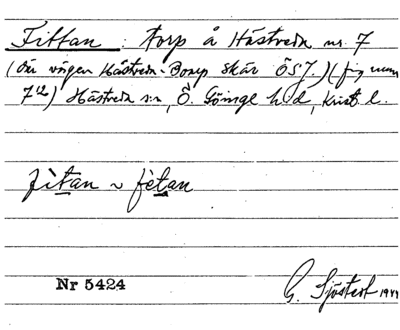 Fittan : torp å Hästveda nr. 7
(där vägen Hästveda - Borup skär ÖSJ.) (fig num
7 12) Hästveda sn, Ö. Göinge hd, Krist l.
fìtan ~ fètan
Nr 5424 G. Sjöstedt 1944